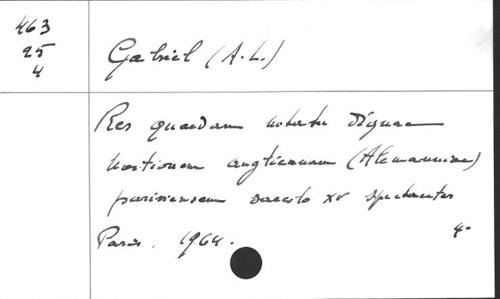 463
25
4
Gabriel (A.L.)
Res quaedam notatu dignae
nationem anglicanam (Alemanniae)
parisiensem saeculo XV spectantes
Paris, 1964.
4º